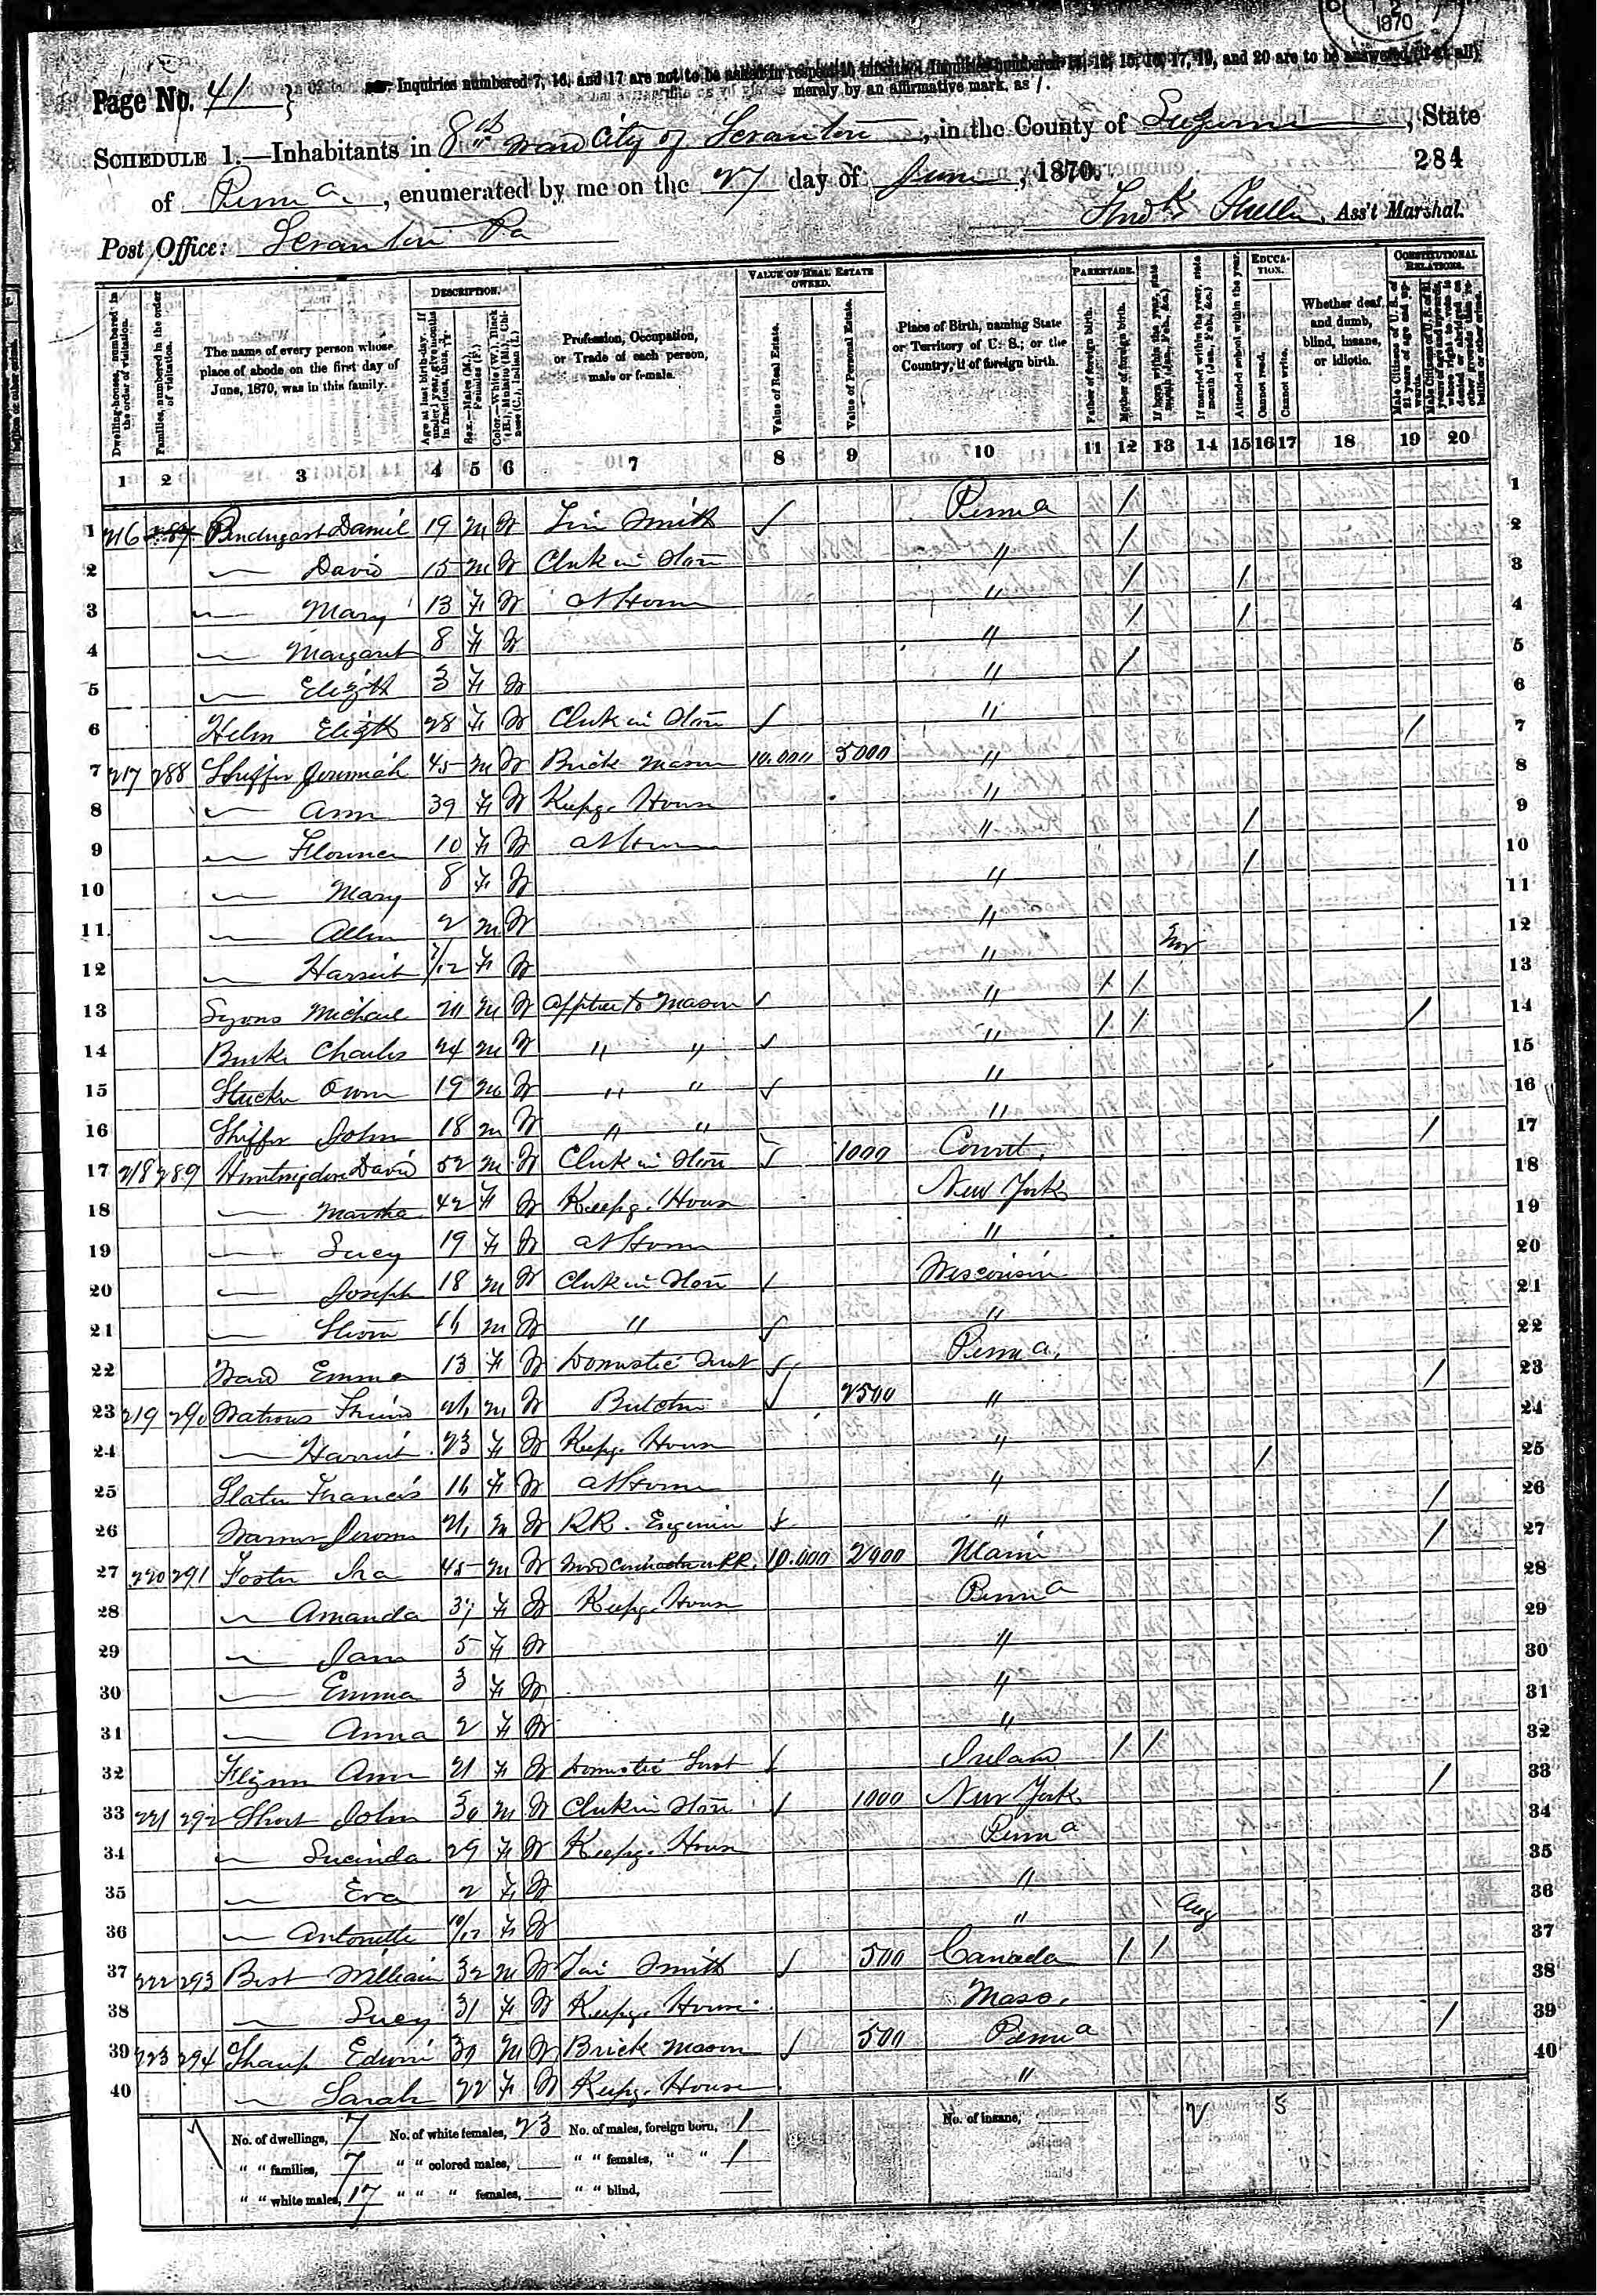 1870
Page No. 41
Inquiries numbered 7, 16, and 17 are not to be asked in respect to infants. Inquiries numbered 11, 12, 15, 16, 17, 19, and 20 are to be answered (if at all)
merely by an affirmative mark, as /.
SCHEDULE 1.—Inhabitants in 8th Ward City of Scranton, in the County of Luzerne, State
of Penna, enumerated by me on the 27 day of June, 1870.
284
Fredk Fuller, Ass't Marshal.
Post Office: Scranton Pa
Dwelling-houses, numbered in the order of visitation.
Families, numbered in the order of visitation.
The name of every person whose place of abode on the first day of June, 1870, was in this family.
DESCRIPTION.
Age at last birth-day. If under 1 year, give months in fractions, thus, 3/12
Sex.—Males (M.), Females (F.)
Color.—White (W.), Black (B.), Mulatto (M.), Chinese (C.), Indian (I.)
Profession, Occupation, or Trade of each person, male or female.
VALUE OF REAL ESTATE OWNED.
Value of Real Estate.
Value of Personal Estate.
Place of Birth, naming State or Territory of U. S.; or the Country, if of foreign birth.
PARENTAGE.
Father of foreign birth.
Mother of foreign birth.
If born within the year, state month (Jan., Feb., &c.)
If married within the year, state month (Jan., Feb., &c.)
Attended school within the year.
EDUCATION.
Cannot read.
Cannot write.
Whether deaf and dumb, blind, insane, or idiotic.
CONSTITUTIONAL RELATIONS.
Male Citizens of U. S. of 21 years of age and upwards.
1 2 3 4 5 6 7 8 9 10 11 12 13 14 15 16 17 18 19 20
1 216 287 Pendergast Daniel 19 M W Tin Smith ✓ Penna / 1
2 — David 15 M W Clerk in Store " / 2
3 — Mary 13 F W At Home " / / 3
4 — Margaret 8 F W " / / 4
5 — Elizth 3 F W " / 5
6 Helm Elizth 28 F W Clerk in Store ✓ " 6
7 217 288 Shiffer Jeremiah 45 M W Brick Mason 10.000 5000 " / 7
8 — Ann 39 F W Keepg. House " 8
9 — Florence 10 F W At Home " / 9
10 — Mary 8 F W " / 10
11 — Allen 2 M W " 11
12 — Harriet /12 F W " 12
13 Lyons Michael M W Apptice to Mason / " / / 13
14 Burke Charles 24 M W " " ✓ " / / / 14
15 Stucker Owen 19 M W " " ✓ " 15
16 Shiffer John 18 M W " " " 16
17 218 289 Huntingdon David 52 M W Clerk in Store ✓ 1000 Connt. / 17
18 — Martha 42 F W Keepg. House New York 18
19 — Lucy 19 F W At Home " 19
20 — Joseph 18 M W Clerk in Store / Wisconsin 20
21 — 16 M W " ✓ " 21
22 Ward Emma 13 F W Domestic Servt ✓ Penna. 22
23 219 290 Watrous M W Butcher ✓ 2500 " / 23
24 — Harriet 23 F W Keepg. House " 24
25 Slater Francis 16 F W At Home " / 25
26 Warner Jerome M W R.R. Engenier ✓ " / 26
27 220 291 Foster Ira 45 M W Wood Contractor R.R. 10.000 2000 Maine / 27
28 — Amanda 37 F W Keepg. House Penna 28
29 — Jane 5 F W " 29
30 — Emma 3 F W " 30
31 — Anna 2 F W " 31
32 Flynn Ann 21 F W Domestic Servt / Ireland / / 32
33 221 292 Short John 30 M W Clerk in Store / 1000 New York / 33
34 — Lucinda 29 F W Keepg. House Penna 34
35 — Eva 2 F W " 35
36 — Antonette 10/12 F W " Aug 36
37 222 293 Best William 32 M W Tin Smith ✓ 500 Canada / / 37
38 — Lucy 31 F W Keepg. House Mass. 38
39 223 294 Sharp Edwin 30 M W Brick Mason ✓ 500 Penna / 39
40 — Sarah 22 F W Keepg. House " 40
No. of dwellings, 7 No. of white females, 23 No. of males, foreign born, 1 No. of insane, 2 5
" " families, 7 " " colored males, " " females, " " 1
" " white males, 17 " " " females, " " blind,